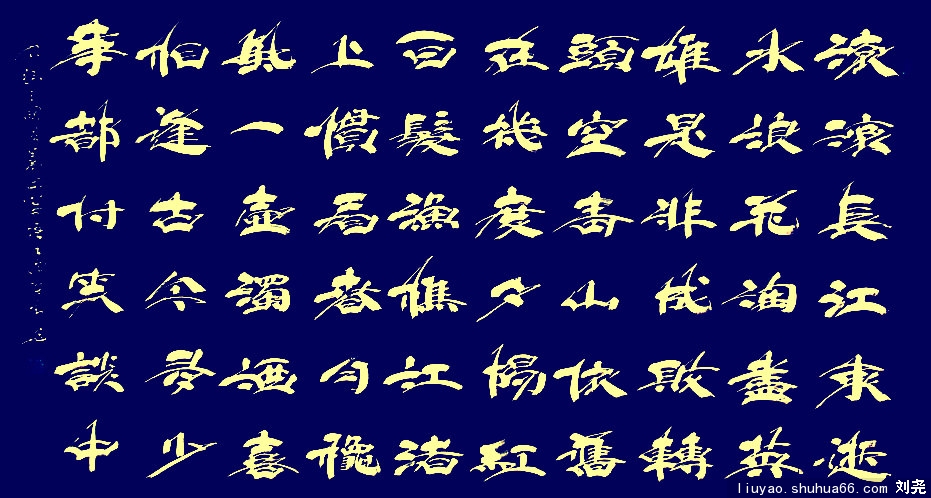 滚滚長江東逝
水浪花淘盡英
雄是非成敗轉
頭空青山依舊
在幾度夕陽紅
白髮漁樵江渚
上慣看春月龝
風一壺濁酒喜
相逢古今多少
事都付笑談中
liuyao.shuhua66.com 刘尧